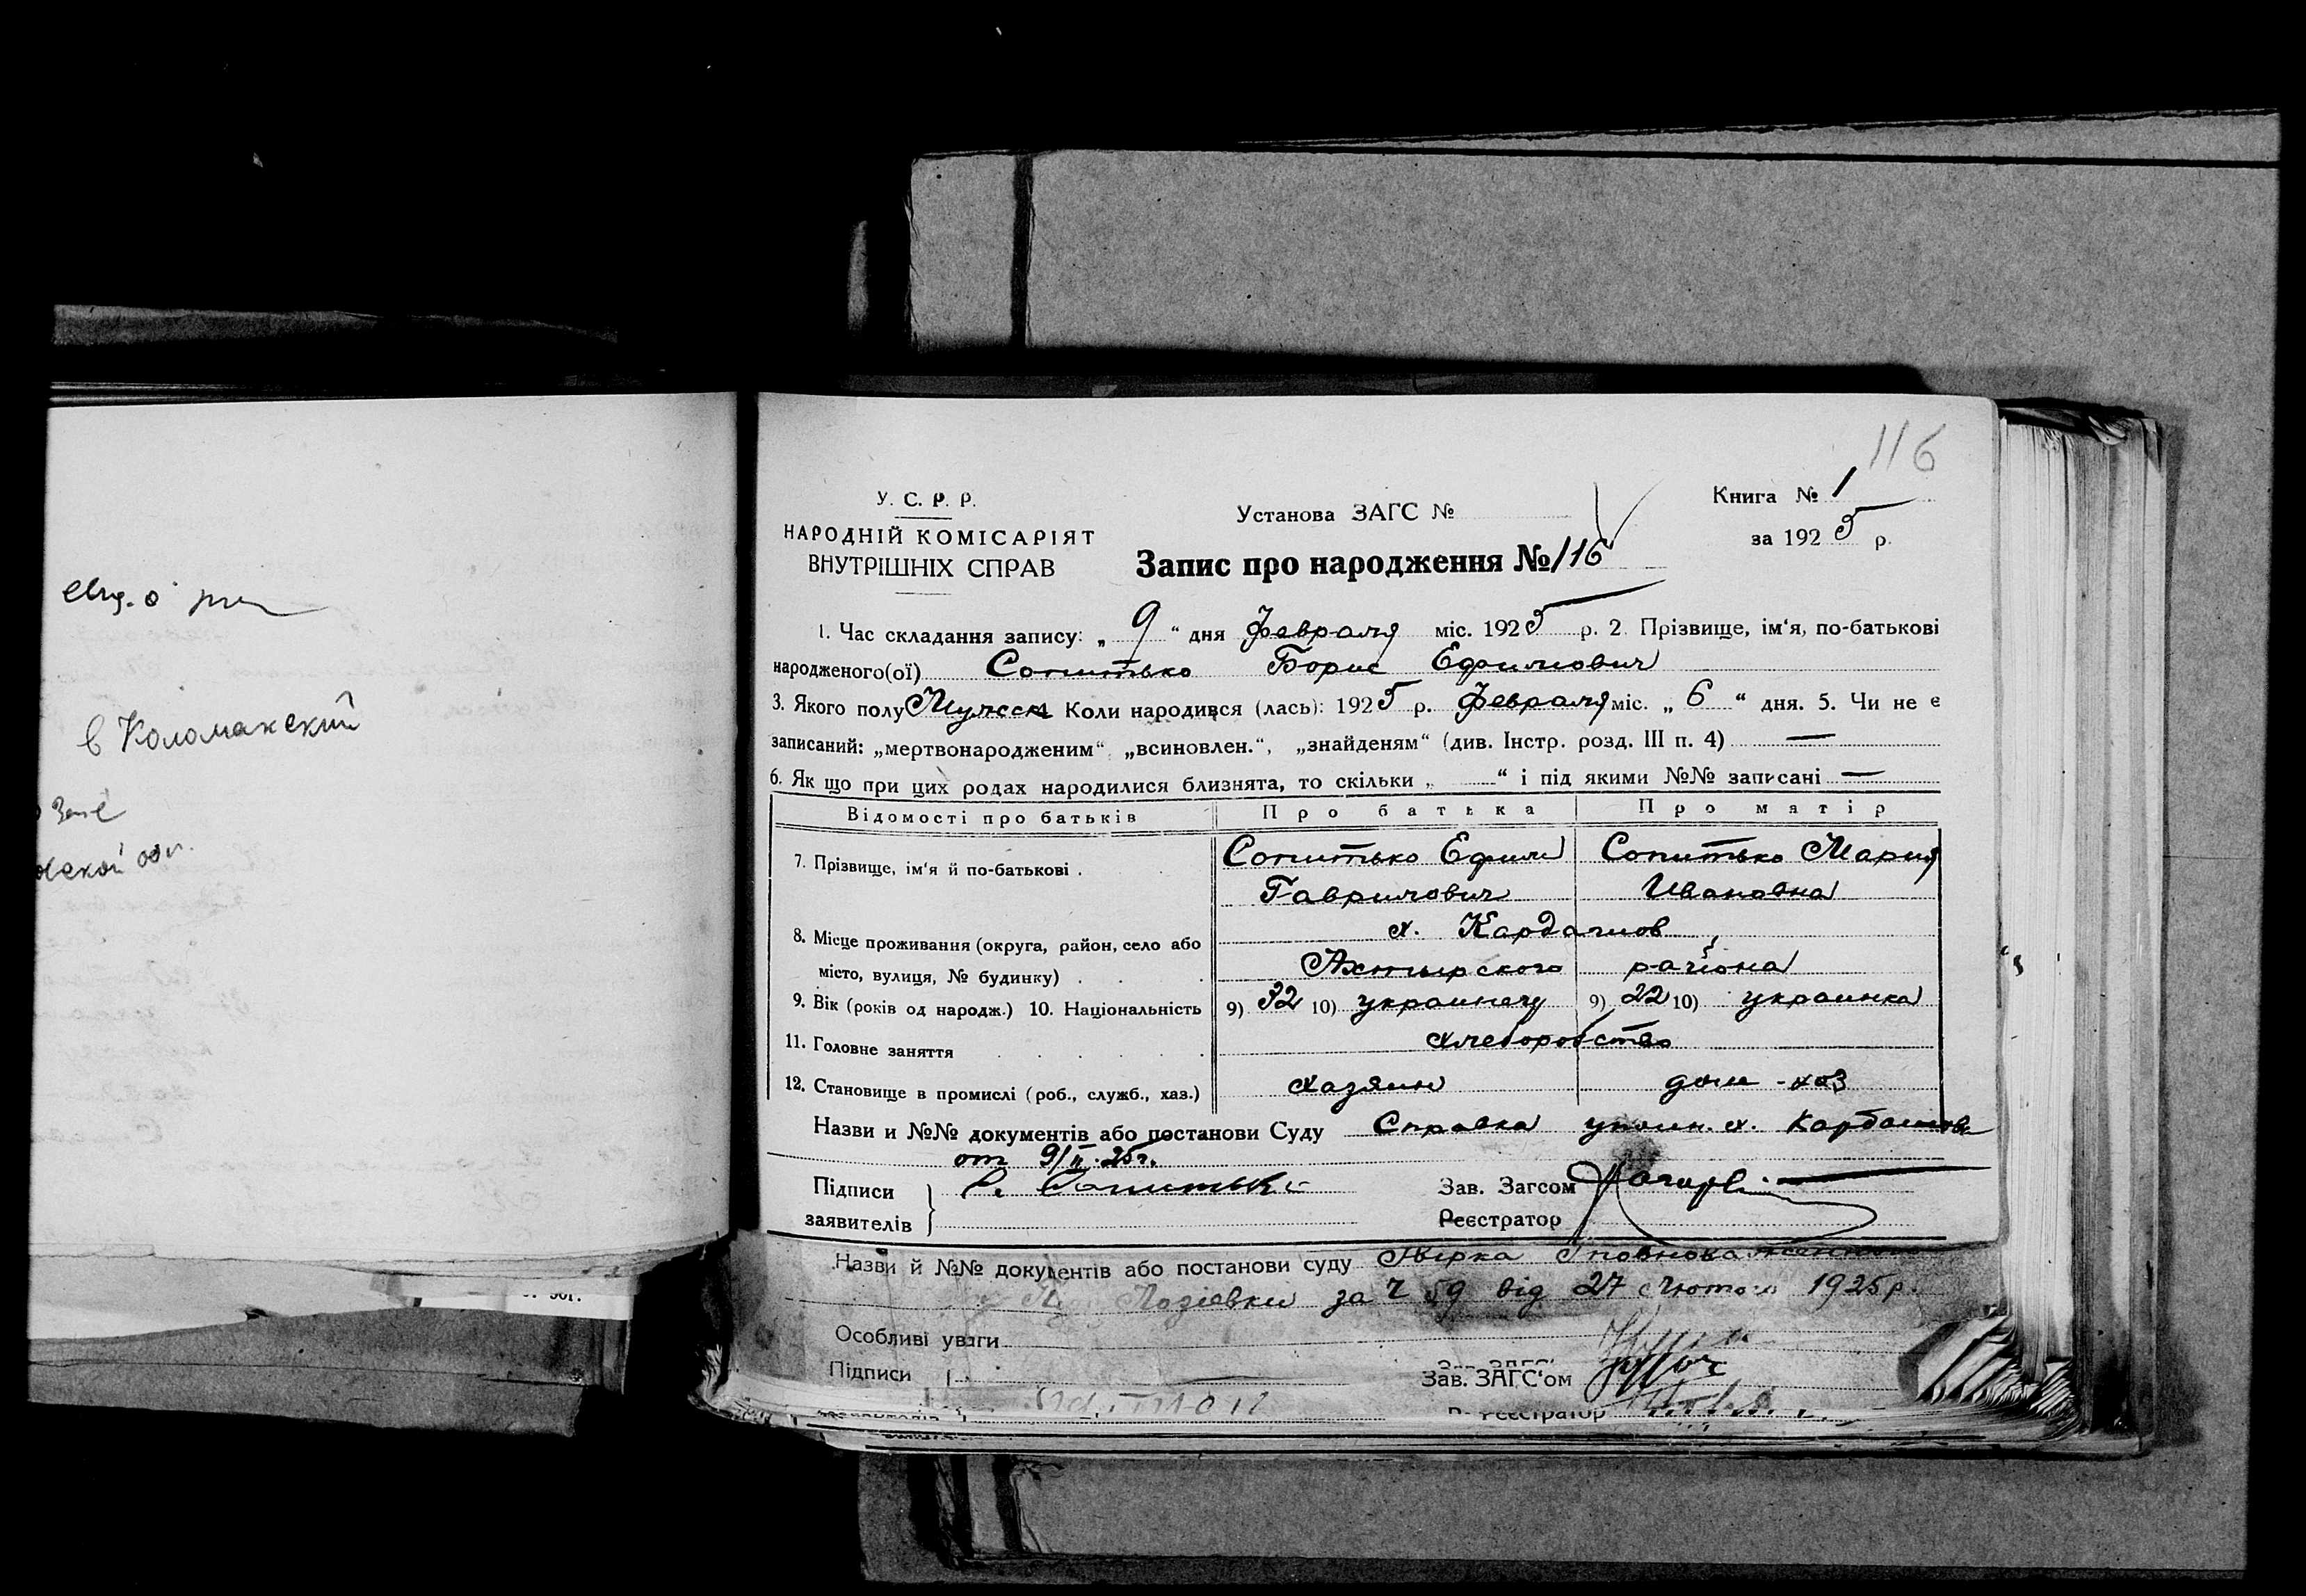 в Коломакский
116
У. С. Р. Р.
НАРОДНІЙ КОМІСАРІЯТ
ВНУТРІШНІХ СПРАВ
Установа ЗАГС №
Книга № 1
за 1925 р.
Запис про народження № 116
1. Час складання запису: „ 9 “ дня Февраля міс. 1925 р. 2. Прізвище, ім'я, по-батькові
народженого(ої) Сопитько Борис Ефимович
3. Якого полу Мужск Коли народився (лась): 1925 р. Февраля міс. „ 6 “ дня. 5. Чи не є
записаний: „мертвонародженим“ „всиновлен.“, „знайденям“ (див. Інстр. розд. III п. 4) —
6. Як що при цих родах народилися близнята, то скільки „ “ і під якими №№ записані —
Відомості про батьків Про батька Про матір
7. Прізвище, ім'я й по-батькові . Сопитько Ефим Сопитько Мария
Гаврилович Ивановна
8. Місце проживання (округа, район, село або х. Кардашов
місто, вулиця, № будинку) . . . Ахтырского района
9. Вік (років од народж.) 10. Національність 9) 32 10) украинец 9) 22 10) украинка
11. Головне заняття . . . . . хлеборобство
12. Становище в промислі (роб., служб., хаз.) хазяин дом-хоз
Назви и №№ документів або постанови Суду Справка уполн. х. Кардашова
от 9/II.25г.
Підписи С. Сопитько Зав. Загсом
заявителів Реєстратор
Назви й №№ документів або постанови суду
за Ч 59 від 27 лютого 1925 р.
Особливі уваги
Підписи Зав. ЗАГС'ом
Реєстратор